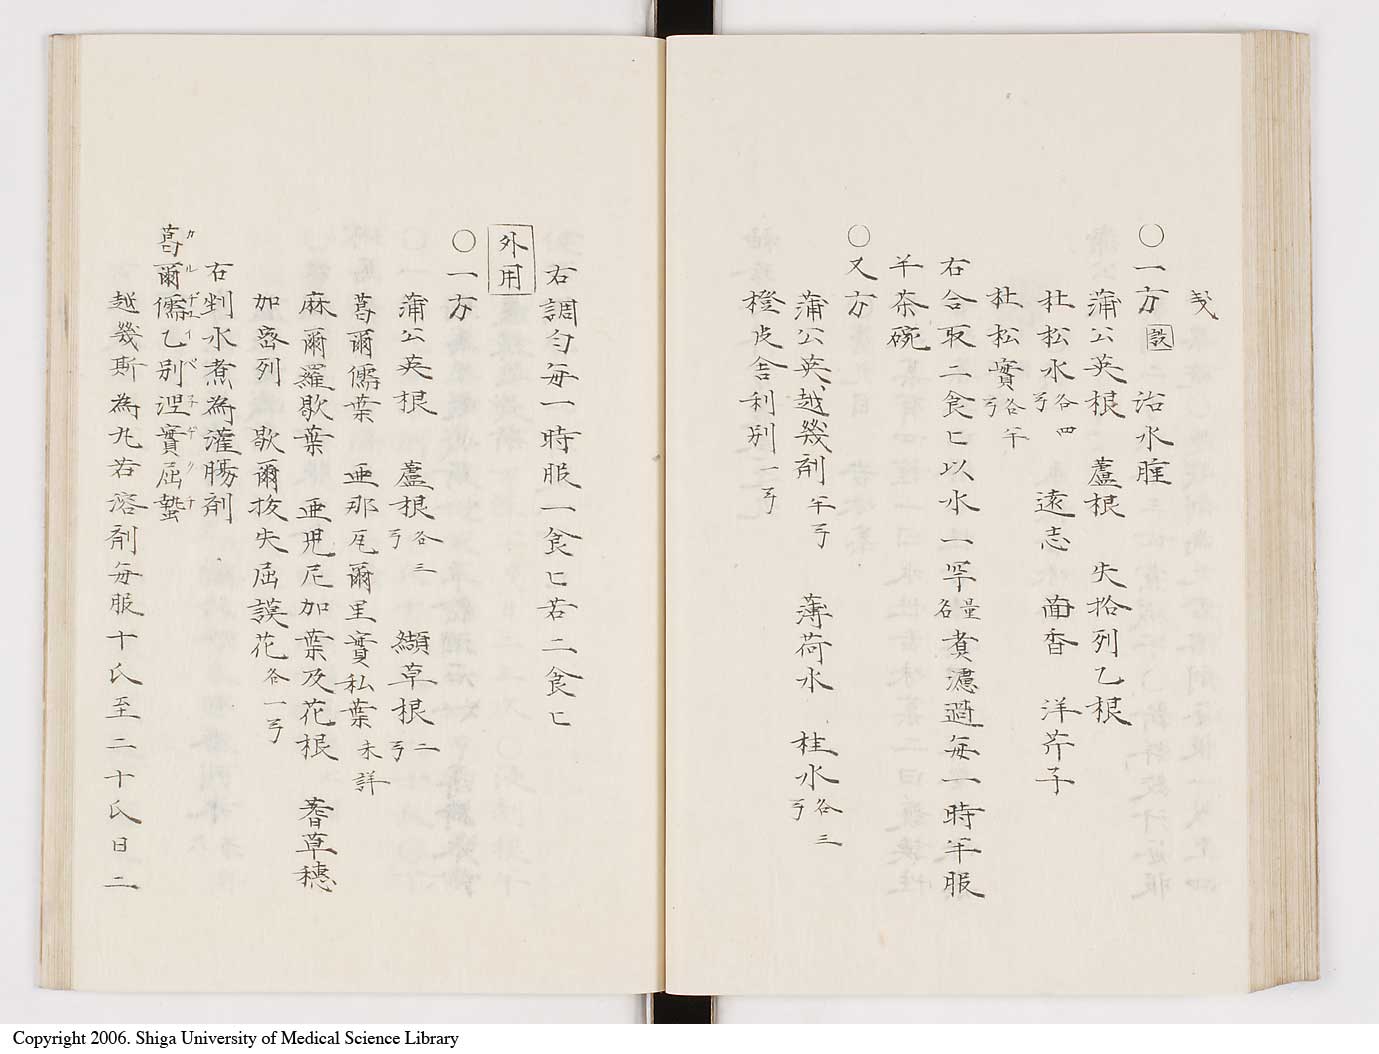 戔
〇一方 治水腫
蒲公英根 蘆根 失拾列乙根
杜松水各四弓 遠志 茴香 洋芥子
杜松實各半弓
右合取二食匕以水一罕量名煑濾過每一時半服
半茶碗
〇又方
蒲公英越幾剤半弓 薄荷水 桂水各三弓
橙皮舎利別一弓
右調勻每一時服一食匕若二食匕
外用
〇一方
蒲公英根 蘆根各三弓 纈草根二弓
葛爾儒葉 亜那瓦爾里實私葉未詳
麻爾羅歇葉 亜兕尼加葉及花根 蓍草穗
加密列 歇爾抜失屈謨花各一弓
右剉水煮為灌腸剤
葛爾儒乙別涅實屈蟄
カルデユイベネデクチ
越幾斯為丸若溶剤每服十氏至二十氏日二
Copyright 2006. Shiga University of Medical Science Library